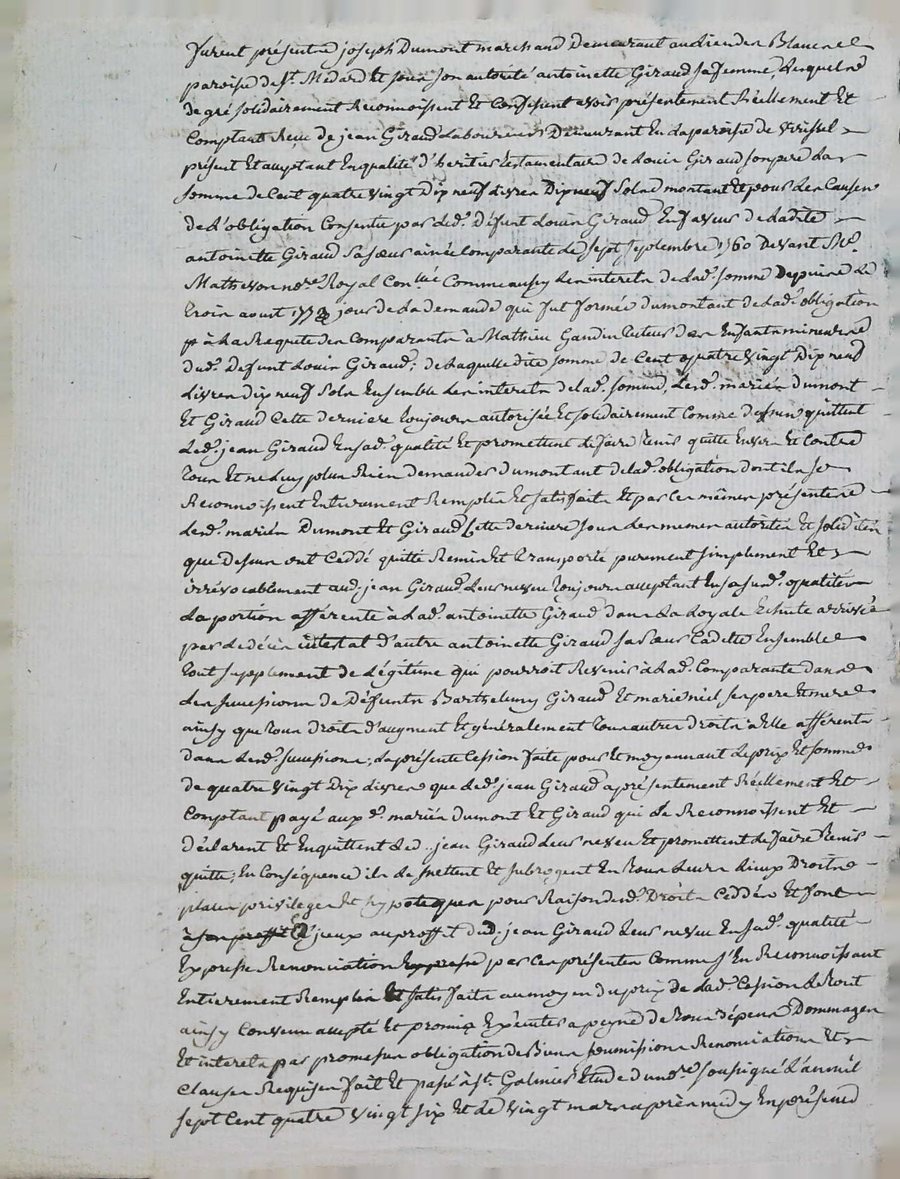 furent présents joseph Dumont marchand Demeurant au lieu des Blancs
paroisse de St. Medard Et sous son autorité antoinette Giraud sa femme, Lesquels
de gré solidairement Reconnoissent Et Confessent avoir présentement Réellement Et
Comptant Reçu de jean Giraud Laboureur Demeurant En la paroisse de
présent Et acceptant En qualité d'heritier testamentaire de Louis Giraud son pere La
somme de Cent quatre vingt Dix neuf livres Dix neuf Sols montant Et pour les Causes
de L'obligation Consentie par led. Défunt Louis Giraud En faveur de ladite
antoinette Giraud Sa sœur ainée Comparante le sept septembre 1760 Devant Me.
Matheson nore. Royal Comme aussy les interets de lad. somme Depuis le
trois aoust jour de la demande qui fut formée du montant de lad. obligation
à la Requete des Comparants à Mathieu Gandin tuteur des Enfants mineurs
dud. Defunt Louis Giraud; de laquelle dite somme de Cent quatre vingt Dix neuf
Livres dix neuf Sols Ensemble les interets de lad. somme, lesd. mariés dumont
Et Giraud Cette derniere toujours autorisée Et solidairement Comme dessus quittent
Led. jean Giraud En sad. qualité Et promettent de faire tenir quitte Envers Et Contre
tous Et ne luy plus Rien demander du montant de lad. obligation dont ils se
Reconnoissent Entierement Remplis Et satisfaits Et par Ces mêmes présentes
lesd. mariés Dumont Et Giraud Cette derniere sous les memes autorités Et solidités
que Dessus ont Ceddé quitté Remis Et transporté purement simplement Et
irrévocablement aud. jean Giraud leur neveu toujours acceptant En sa susd. qualité
La portion afférente à lad. antoinette Giraud dans la Loyale Echute arrivée
par le décès intestat d'autre antoinette Giraud sa sœur Cadette Ensemble
tout supplement de Légitime qui pourroit Revenir à lad. Comparante dans
les successions de Défunts Barthelemy Giraud Et marie niel ses pere Et mere
ainsy que tous droits d'augment Et généralement tous autres droits à Elle afférents
dans lesd. successions; la présente Cession faite pour Et moyennant le prix Et somme
de quatre vingt Dix livres que led. jean Giraud a présentement Réellement Et
Comptant payé auxd. mariés dumont Et Giraud qui le Reconnoissent Et
déclarent Et En quittent led. jean Giraud leur neveu Et promettent de faire tenir
quitte; En Consequence ils le mettent Et subrogent En tous leurs lieux Droits
places privileges Et hypoteques pour Raison desd. Droits Ceddés Et font
à son proffit d'jceux au proffit dud. jean Giraud leur neveu En sad. qualité
Expresse Renonciation Expresse par Ces présentes Comme s'En Reconnoissant
Entierement Remplis Et satisfaits au moyen du prix de lad. Cession le tout
ainsy Convenu accepté Et promis Exécuter a peyne de tous dépens Dommages
Et interets par promesses obligation de Biens soumissions Renonciations Et
Clauses Requises fait Et passé à St. Galmier Etude du nore. soussigné L'an mil
sept Cent quatre vingt six Et le vingt mars après midy En présence